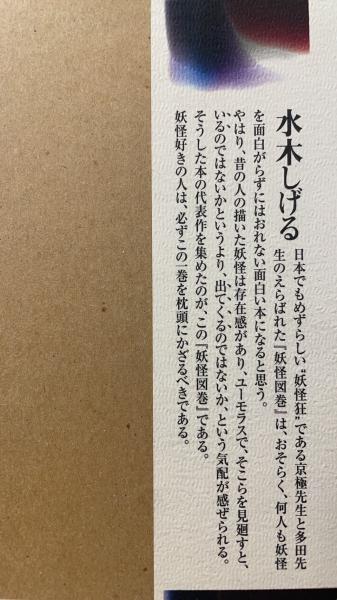 水木しげる
日本でもめずらしい“妖怪狂”である京極先生と多田先
生のえらばれた『妖怪図巻』は、おそらく、何人も妖怪
を面白がらずにはおれない面白い本になると思う。
やはり、昔の人の描いた妖怪は存在感があり、ユーモラスで、そこらを見廻すと、
いるのではないかというより、出てくるのではないか、という気配が感ぜられる。
そうした本の代表作を集めたのが、この『妖怪図巻』である。
妖怪好きの人は、必ずこの一巻を枕頭にかざるべきである。